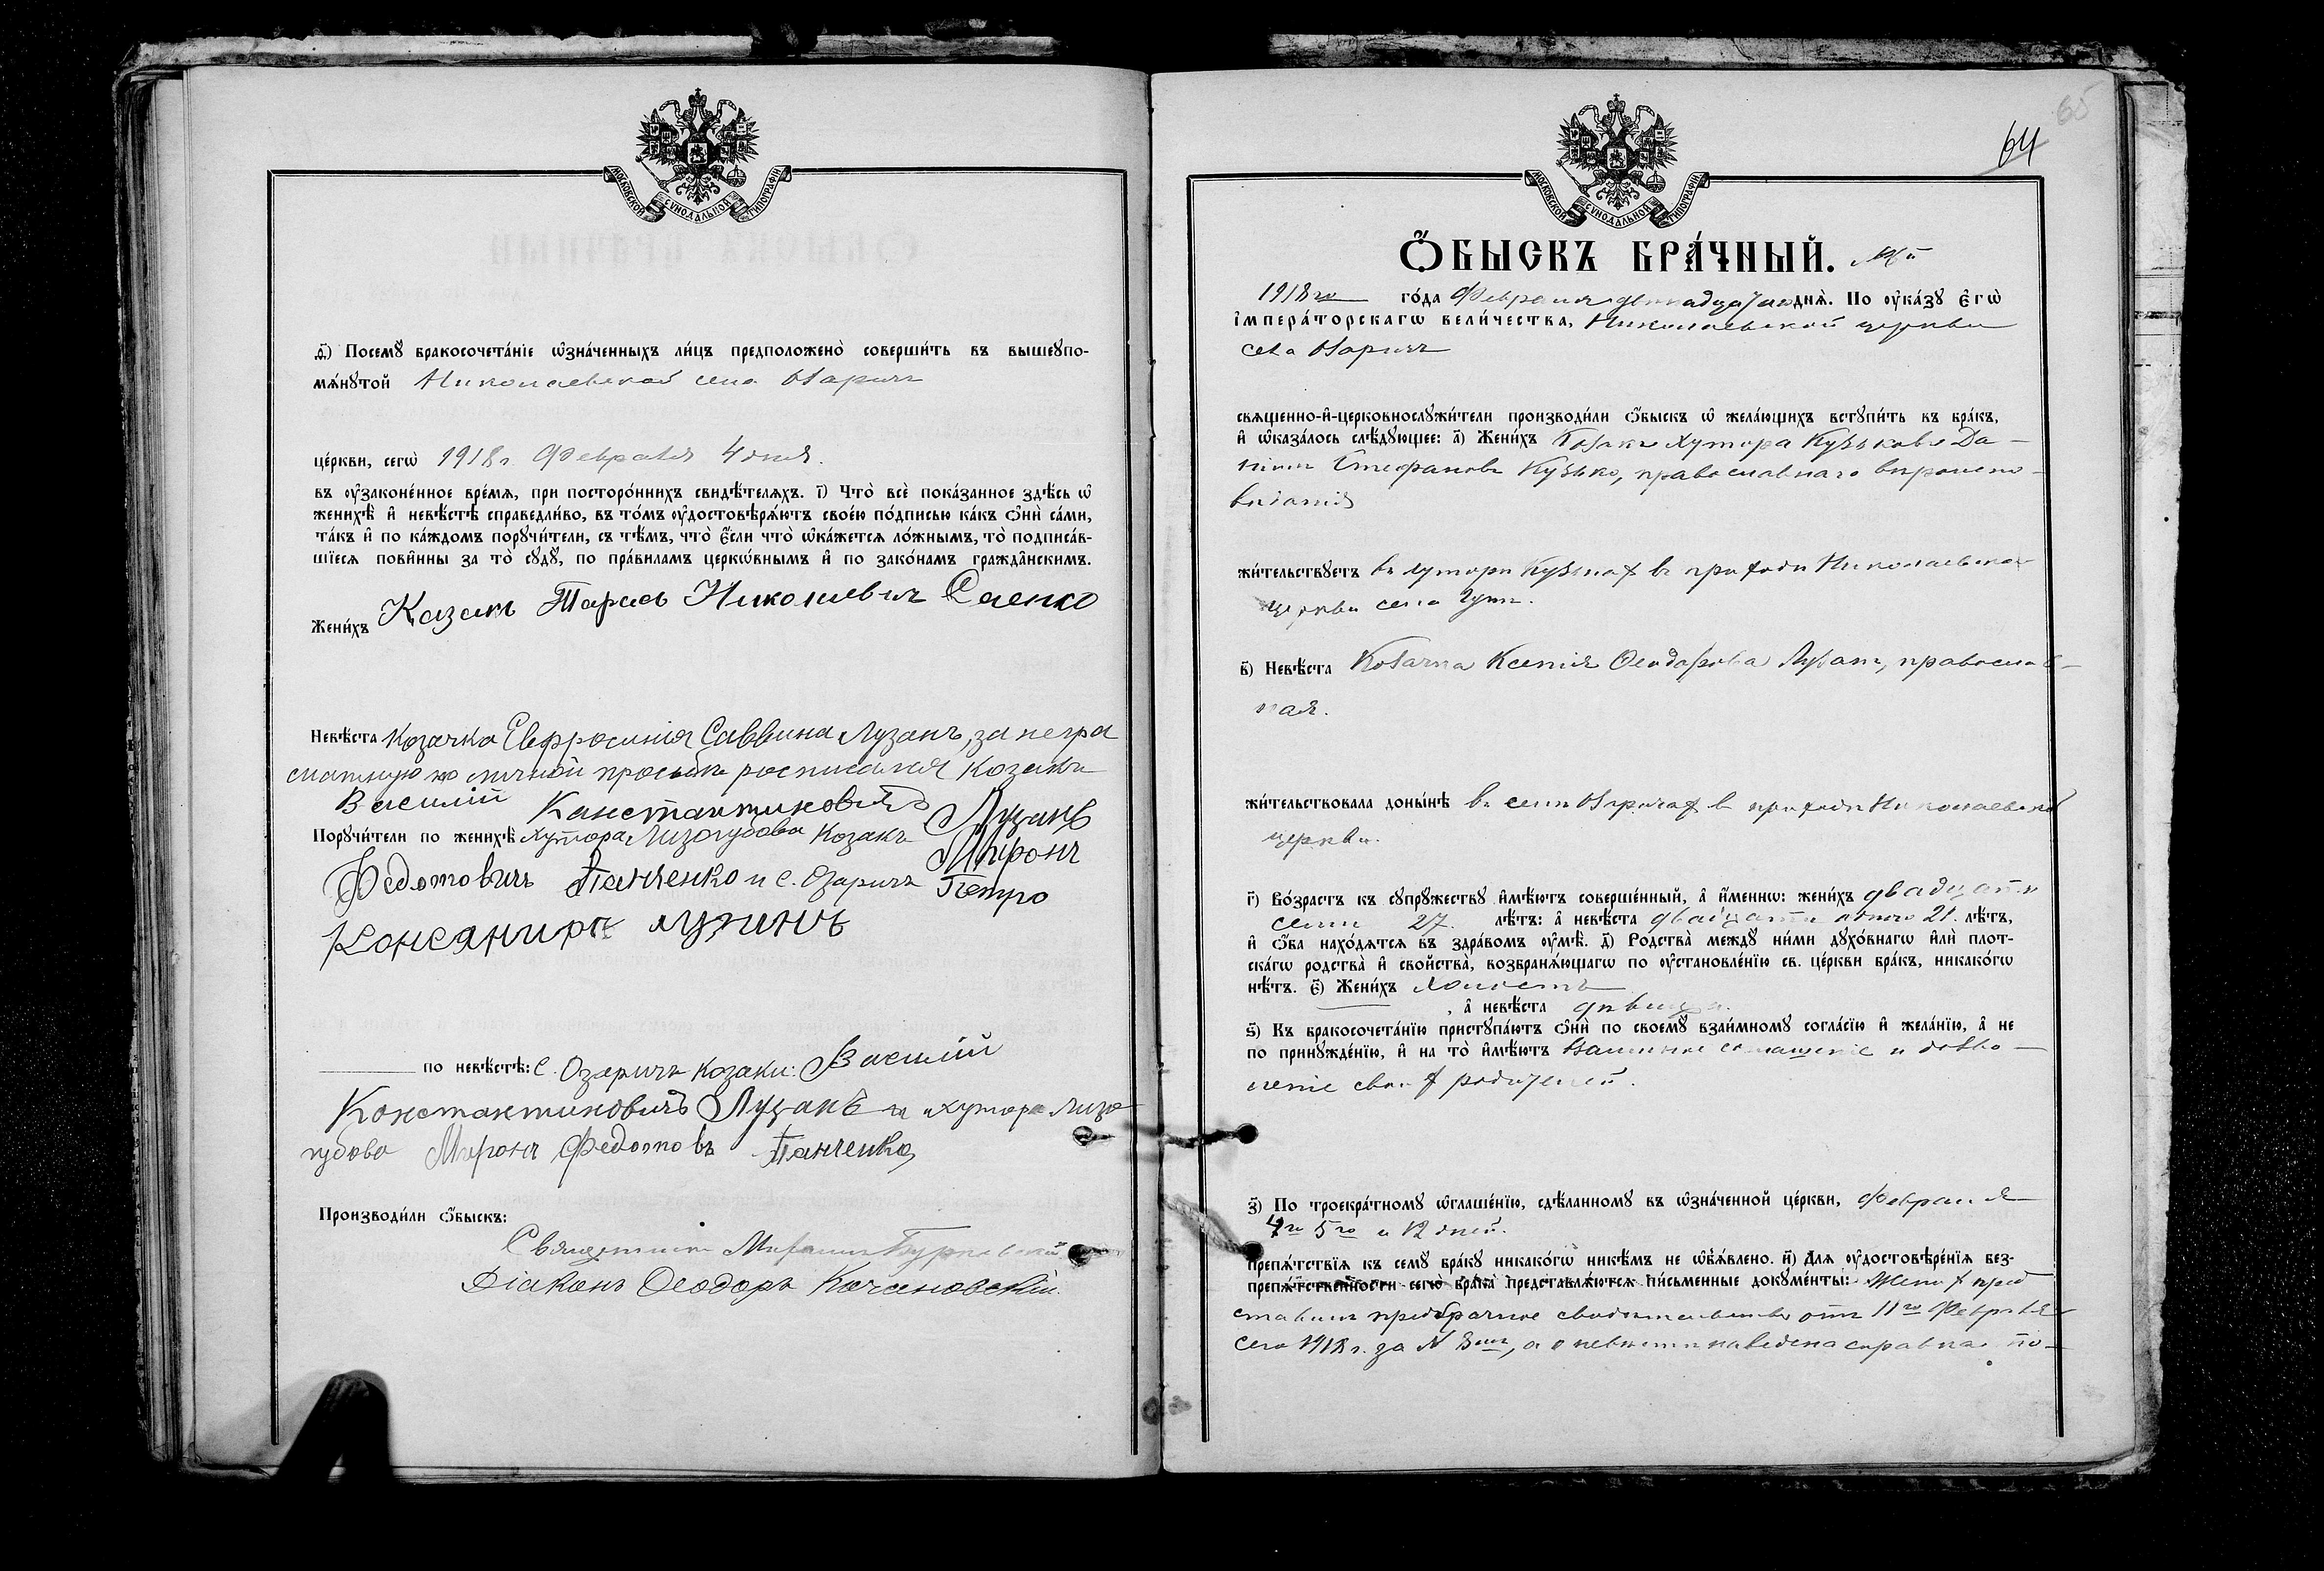 МОСКОВСКОЙ СѴНОДАЛЬНОЙ ТИПОГРАФІИ
д҃) Посемꙋ̀ бракосочета́нїе ѡ҆зна́ченныхъ ли́цъ предположено̀ соверши́ть въ вышеꙋпо-
мѧ́нꙋтой Николаевской села Озаричъ
це́ркви, сегѡ̀ 1918 г. Февраля 4 дня.
въ оу҆зако́ненное вре́мѧ, при посторо́ннихъ свидѣ́телѧхъ. і҃) Что̀ всѐ пока́занное здѣ́сь ѡ҆
женихѣ̀ и҆ невѣ́стѣ справедли́во, въ то́мъ оу҆достовѣрѧ́ютъ свое́ю по́дписью ка́къ ѻ҆нѝ са́ми,
та́къ и҆ по ка́ждомъ порꙋчи́тели, съ тѣ́мъ, что̀ є҆́сли что̀ ѡ҆ка́жетсѧ ло́жнымъ, то̀ подписа́в-
шїесѧ пови́нны за то̀ сꙋдꙋ̀, по пра́виламъ церко́внымъ и҆ по зако́намъ гражда̑нскимъ.
Жени́хъ Казакъ Тарасъ Николаевич Саенко
Невѣ́ста Козачка Евфросинія Саввина Лузанъ, за негра
мотную по личной просьбѣ росписался Козакъ
Василій Канстантиновичъ Лузанъ
Порꙋчи́тели по женихѣ̀ хутора Лизогубова Козакъ Миронъ
Федотовичъ Панченко и с. Озаричъ Петро
лузинъ
по невѣ́стѣ: С. Озаричъ козаки: Василій
Константиновичъ Лузанъ и хутора Лизо
губова Миронъ Федотовъ Панченко,
Производи́ли ѻ҆́быскъ:
Священникъ
Діаконъ Ѳеодоръ Качановскій.
65
64
МОСКОВСКОЙ СѴНОДАЛЬНОЙ ТИПОГРАФІИ
Ѻ҆́БЫСКЪ БРА́ЧНЫЙ.
1918 го го́да Февраля двенадцатаго днѧ̀. По оу҆ка́зꙋ є҆гѡ̀
і҆мпера́торскагѡ вели́чества, Николаевской церкви
села Озаричъ
свѧщенно-и҆-церковнослꙋжи́тели производи́ли ѻ҆́быскъ ѡ҆ жела́ющихъ встꙋпи́ть въ бра́къ,
и҆ ѡ҆каза́лось слѣ́дꙋющее: а҃) Жени́хъ Козакъ хутора Кузьковъ Да-
ніилъ Стефановъ Кузько, православнаго вѣроиспо-
вѣданія
жи́тельствꙋетъ въ хуторѣ въ приходѣ Николаевской
церкви села
в҃) Невѣ́ста Козачка Ксенія Ѳеодорова Лузанъ, православ-
ная.
жи́тельствовала доны́нѣ въ селѣ Озаричах в приходѣ Николаевской
церкви.
г҃) Во́зрастъ къ сꙋпрꙋ́жествꙋ и҆мѣ́ютъ соверше́нный, а҆ и҆́меннѡ: жени́хъ двадцати
семи 27. лѣ́тъ: а҆ невѣ́ста двадцати одного 21. лѣ́тъ,
и҆ ѻ҆́ба нахо́дѧтсѧ въ здра́вомъ оу҆мѣ̀. д҃) Родства̀ междꙋ̀ ни́ми дꙋхо́внагѡ и҆лѝ плот-
ска́гѡ родства̀ и҆ сво́йства̀, возбранѧ́ющагѡ по оу҆становле́нїю св. це́ркви бра́къ, никако́гѡ
нѣ́тъ. є҃) Жени́хъ холостъ
, а҆ невѣ́ста дѣвица.
ѕ҃) Къ бракосочета́нїю пристꙋпа́ютъ ѻ҆нѝ по своемꙋ̀ взаи́мномꙋ согла́сїю и҆ жела́нїю, а҆ не
по принꙋжде́нїю, и҆ на то̀ и҆мѣ́ютъ взаимное соглашеніе и дозво-
леніе своих родителей.
з҃) По троекра́тномꙋ ѡ҆глаше́нїю, сдѣ́ланномꙋ въ ѡ҆зна́ченной це́ркви, Февраля
4го 5го и 12 дней.
препѧ́тствїѧ къ семꙋ̀ бра́кꙋ никако́гѡ никѣ́мъ не ѡ҆б̾ѧ́влено. и҃) Длѧ̀ оу҆достовѣре́нїѧ без-
препѧ́тственности сегѡ̀ бра́ка представлѧ́ютсѧ пи́сьменные докꙋме́нты: Жених пред
ставилъ предбрачное свидѣтельство отъ 11го Февраля
сего 1918 г. за N, а о невѣстѣ наведена справка по-